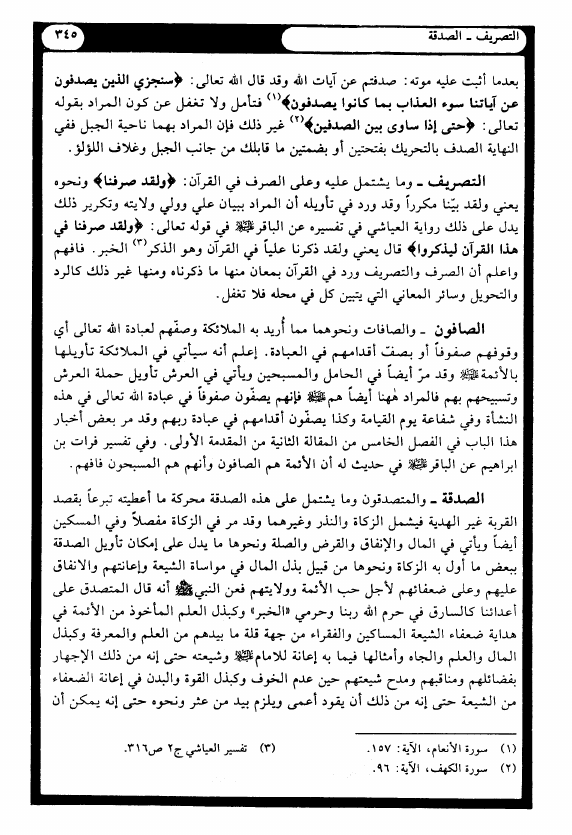 التصريف ـ الصدقة
٣٤٥
بعدما أثبت عليه موته: صدفتم عن آيات الله وقد قال الله تعالى: ﴿سنجزي الذين يصدفون
عن آياتنا سوء العذاب بما كانوا يصدفون﴾(١) فتأمل ولا تغفل عن كون المراد بقوله
تعالى: ﴿حتى إذا ساوى بين الصدفين﴾(٢) غير ذلك فإن المراد بهما ناحية الجبل ففي
النهاية الصدف بالتحريك بفتحتين أو بضمتين ما قابلك من جانب الجبل وغلاف اللؤلؤ.
التصريف ـ وما يشتمل عليه وعلى الصرف في القرآن: ﴿ولقد صرفنا﴾ ونحوه
يعني ولقد بيّنا مكرراً وقد ورد في تأويله أن المراد ببيان علي وولي ولايته وتكرير ذلك
يدل على ذلك رواية العياشي في تفسيره عن الباقر ﷺ في قوله تعالى: ﴿ولقد صرفنا في
هذا القرآن ليذكروا﴾ قال يعني ولقد ذكرنا علياً في القرآن وهو الذكر(٣) الخبر. فافهم
واعلم أن الصرف والتصريف ورد في القرآن بمعان منها ما ذكرناه ومنها غير ذلك كالرد
والتحويل وسائر المعاني التي يتبين كل في محله فلا تغفل.
الصافون ـ والصافات ونحوهما مما أُريد به الملائكة وصفّهم لعبادة الله تعالى أي
وقوفهم صفوفاً أو بصفّ أقدامهم في العبادة. إعلم أنه سيأتي في الملائكة تأويلها
بالأئمة ﷺ وقد مرّ أيضاً في الحامل والمسبحين ويأتي في العرش تأويل حملة العرش
وتسبيحهم بهم فالمراد ههنا أيضاً هم ﷺ فإنهم يصفّون صفوفاً في عبادة الله تعالى في هذه
النشأة وفي شفاعة يوم القيامة وكذا يصفّون أقدامهم في عبادة ربهم وقد مر بعض أخبار
هذا الباب في الفصل الخامس من المقالة الثانية من المقدمة الأولى. وفي تفسير فرات بن
ابراهيم عن الباقر ﷺ في حديث له أن الأئمة هم الصافون وأنهم هم المسبحون فافهم.
الصدقة ـ والمتصدقون وما يشتمل على هذه الصدقة محركة ما أعطيته تبرعاً بقصد
القربة غير الهدية فيشمل الزكاة والنذر وغيرهما وقد مر في الزكاة مفصلاً وفي المسكين
أيضاً ويأتي في المال والإنفاق والقرض والصلة ونحوها ما يدل على إمكان تأويل الصدقة
ببعض ما أول به الزكاة ونحوها من قبيل بذل المال في مواساة الشيعة وإعانتهم والانفاق
عليهم وعلى ضعفائهم لأجل حب الأئمة وولايتهم فعن النبي ﷺ أنه قال المتصدق على
أعدائنا كالسارق في حرم الله ربنا وحرمي «الخبر» وكبذل العلم المأخوذ من الأئمة في
هداية ضعفاء الشيعة المساكين والفقراء من جهة قلة ما بيدهم من العلم والمعرفة وكبذل
المال والعلم والجاه وأمثالها فيما به إعانة للامام ﷺ وشيعته حتى إنه من ذلك الإجهار
بفضائلهم ومناقبهم ومدح شيعتهم حين عدم الخوف وكبذل القوة والبدن في إعانة الضعفاء
من الشيعة حتى إنه من ذلك أن يقود أعمى ويلزم بيد من عثر ونحوه حتى إنه يمكن أن
(١) سورة الأنعام، الآية: ١٥٧.
(٣) تفسير العياشي ج٢ ص٣١٦.
(٢) سورة الكهف، الآية: ٩٦.